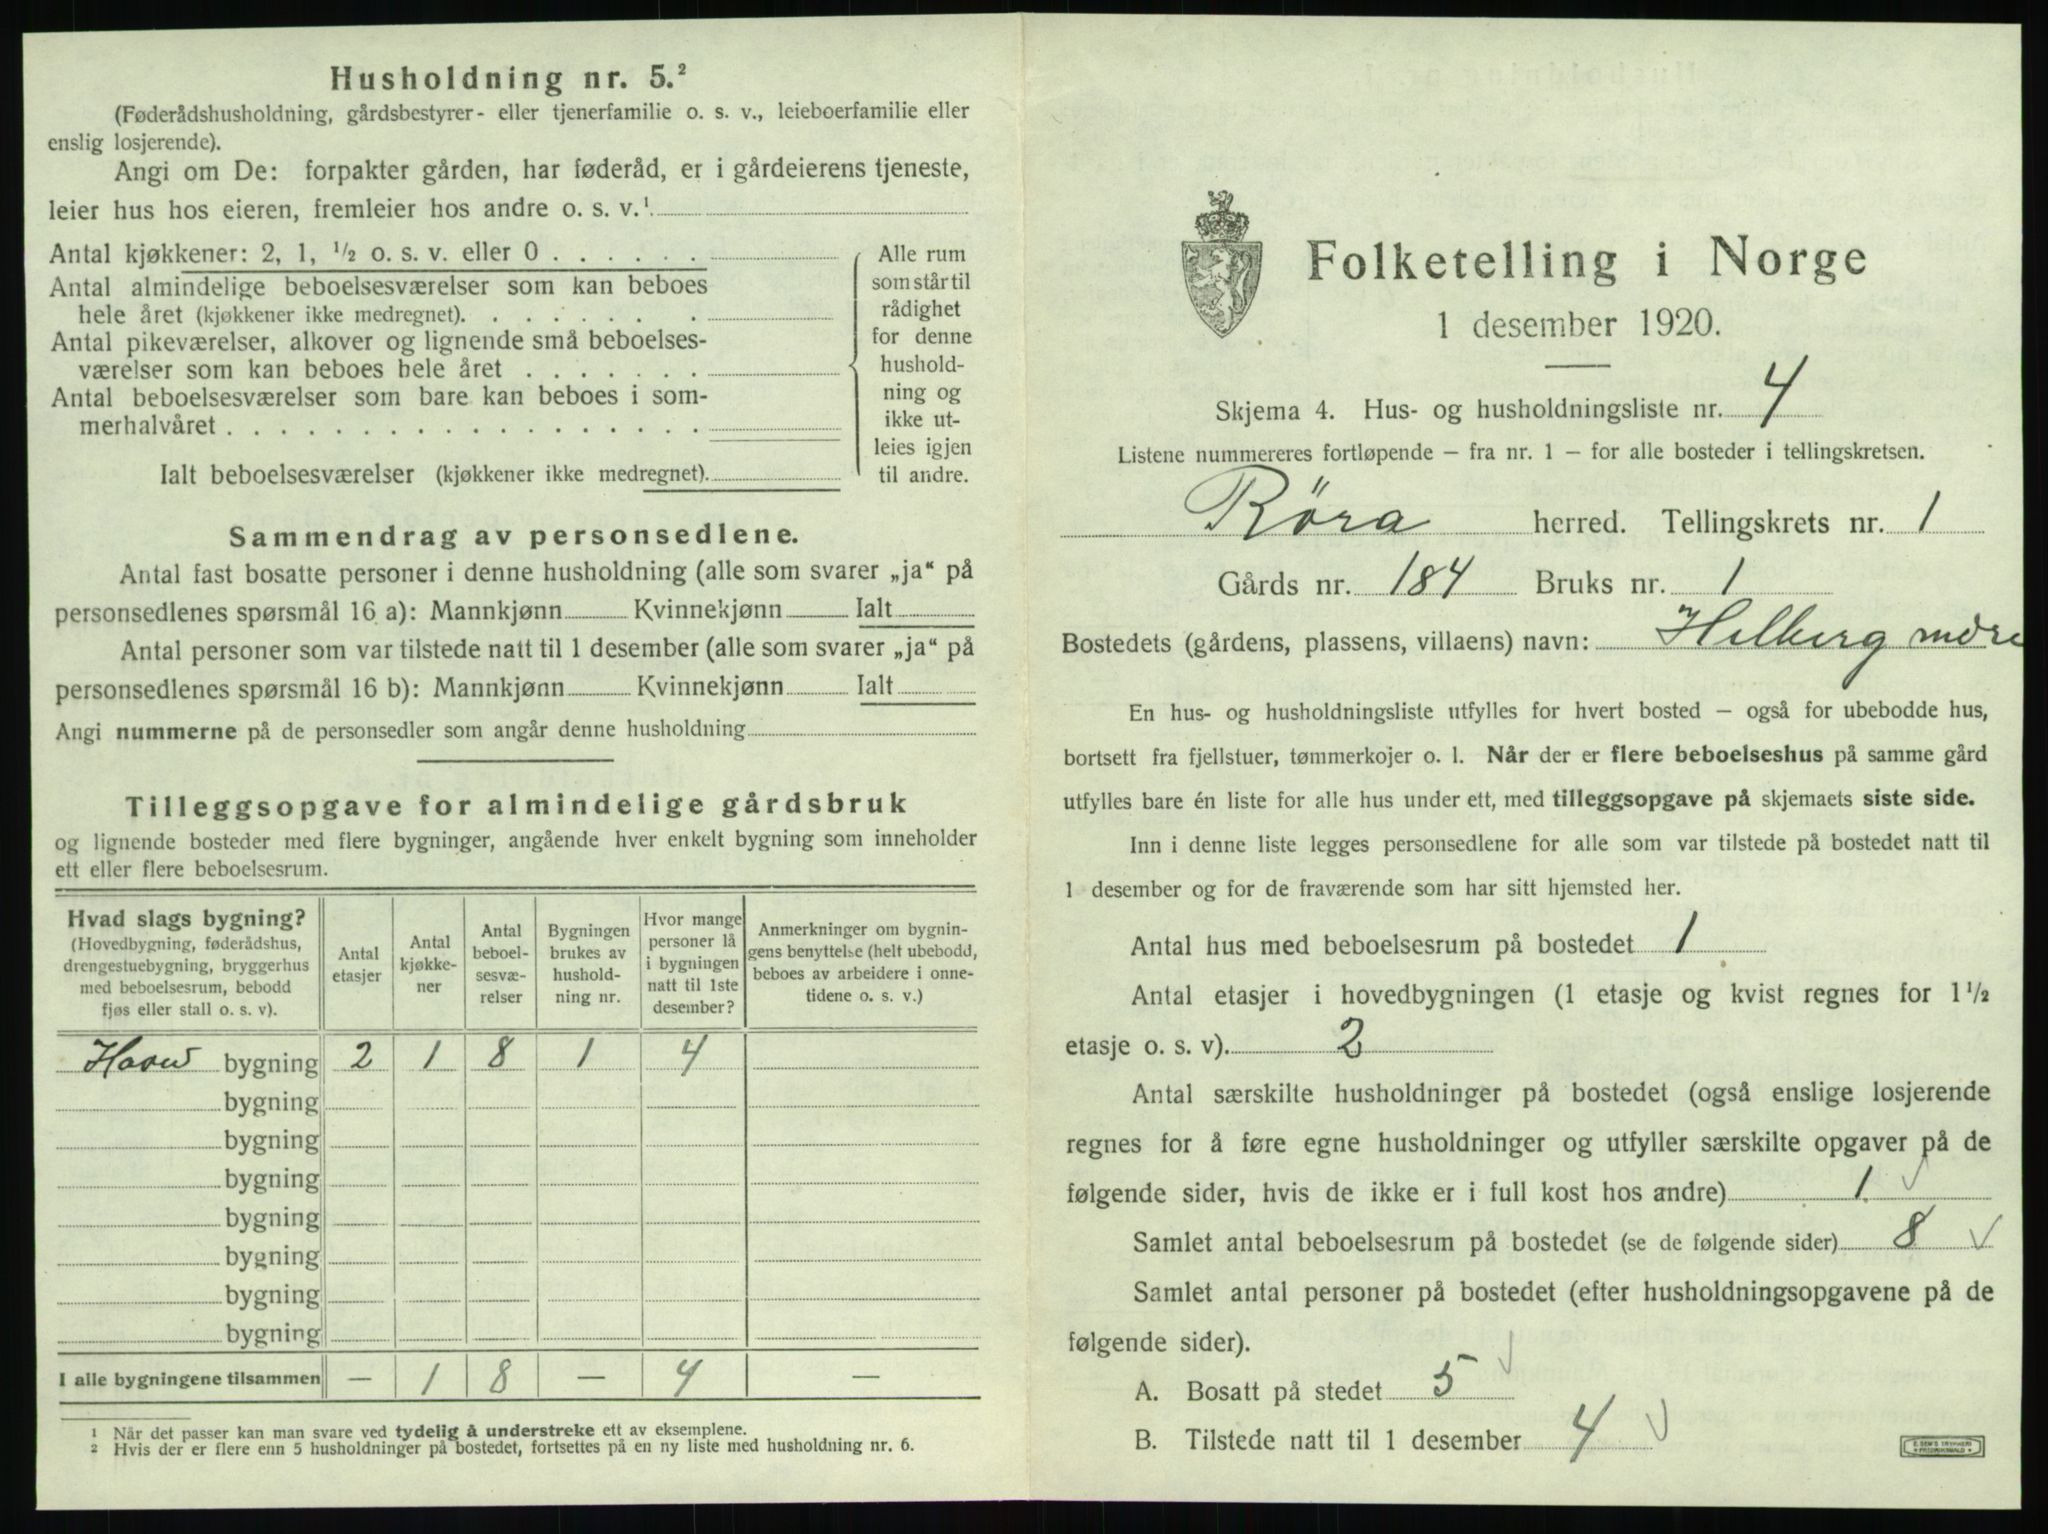 Husholdning nr. 5.²
(Føderådshusholdning, gårdsbestyrer- eller tjenerfamilie o. s. v., leieboerfamilie eller
enslig losjerende).
Angi om De: forpakter gården, har føderåd, er i gårdeierens tjeneste,
leier hus hos eieren, fremleier hos andre o. s. v.¹
Antal kjøkkener: 2, 1, ½ o. s. v. eller 0 . . . . . .
Antal almindelige beboelsesværelser som kan beboes
hele året (kjøkkener ikke medregnet). . . . . . . .
Antal pikeværelser, alkover og lignende små beboelses-
værelser som kan beboes hele året . . . . . . .
Antal beboelsesværelser som bare kan beboes i som-
merhalvåret . . . . . . . . . . . . . . . . . .
Ialt beboelsesværelser (kjøkkener ikke medregnet).
Alle rum
som står til
rådighet
for denne
hushold-
ning og
ikke ut-
leies igjen
til andre.
Sammendrag av personsedlene.
Antal fast bosatte personer i denne husholdning (alle som svarer „ja“ på
personsedlenes spørsmål 16 a): Mannkjønn Kvinnekjønn Ialt
Antal personer som var tilstede natt til 1 desember (alle som svarer „ja“ på
personsedlenes spørsmål 16 b): Mannkjønn Kvinnekjønn Ialt
Angi nummerne på de personsedler som angår denne husholdning
Tilleggsopgave for almindelige gårdsbruk
og lignende bosteder med flere bygninger, angående hver enkelt bygning som inneholder
ett eller flere beboelsesrum.
Hvad slags bygning?
(Hovedbygning, føderådshus,
drengestuebygning, bryggerhus
med beboelsesrum, bebodd
fjøs eller stall o. s. v).
Antal
etasjer
Antal
kjøkke-
ner
Antal
beboel-
sesvæ-
relser
Bygningen
brukes av
hushold-
ning nr.
Hvor mange
personer lå
i bygningen
natt til 1ste
desember?
Anmerkninger om bygnin-
gens benyttelse (helt ubebodd,
beboes av arbeidere i onne-
tidene o. s. v.)
bygning 2 1 8 1 4
bygning
bygning
bygning
bygning
bygning
bygning
bygning
I alle bygningene tilsammen — 1 8 — 4 —
¹ Når det passer kan man svare ved tydelig å understreke ett av eksemplene.
² Hvis der er flere enn 5 husholdninger på bostedet, fortsettes på en ny liste med husholdning nr. 6.
Folketelling i Norge
1 desember 1920.
Skjema 4. Hus- og husholdningsliste nr. 4
Listene nummereres fortløpende – fra nr. 1 – for alle bosteder i tellingskretsen.
Röra herred. Tellingskrets nr. 1
Gårds nr. 184 Bruks nr. 1
Bostedets (gårdens, plassens, villaens) navn: Helberg
En hus- og husholdningsliste utfylles for hvert bosted – også for ubebodde hus,
bortsett fra fjellstuer, tømmerkojer o. l. Når der er flere beboelseshus på samme gård
utfylles bare én liste for alle hus under ett, med tilleggsopgave på skjemaets siste side.
Inn i denne liste legges personsedlene for alle som var tilstede på bostedet natt til
1 desember og for de fraværende som har sitt hjemsted her.
Antal hus med beboelsesrum på bostedet 1
Antal etasjer i hovedbygningen (1 etasje og kvist regnes for 1½
etasje o. s. v). 2
Antal særskilte husholdninger på bostedet (også enslige losjerende
regnes for å føre egne husholdninger og utfyller særskilte opgaver på de
følgende sider, hvis de ikke er i full kost hos andre) 1. ✓
Samlet antal beboelsesrum på bostedet (se de følgende sider) 8 ✓
Samlet antal personer på bostedet (efter husholdningsopgavene på de
følgende sider).
A. Bosatt på stedet 5 ✓
B. Tilstede natt til 1 desember 4 ✓